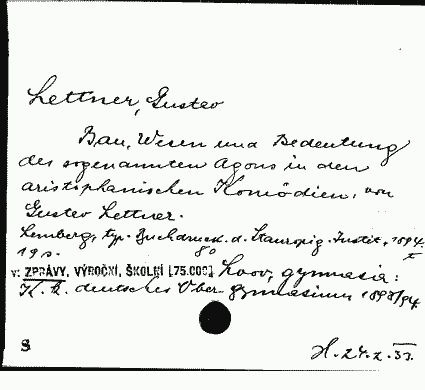 Lettner, Gustav
Bau, Wesen und Bedeutung
des sogenannten Agons in den
aristophanischen Komödien, von
Gustav Lettner.
Lemberg, typ. Buchdruck. d. Stauropig. Instit., 1894.
19 p. 8°
v: ZPRÁVY, VÝROČNÍ, ŠKOLNÍ [75.000] Lvov, gymnasia:
K. k. deutsches Ober-gymnasium 1893/94.
S
H. 24.2.33.